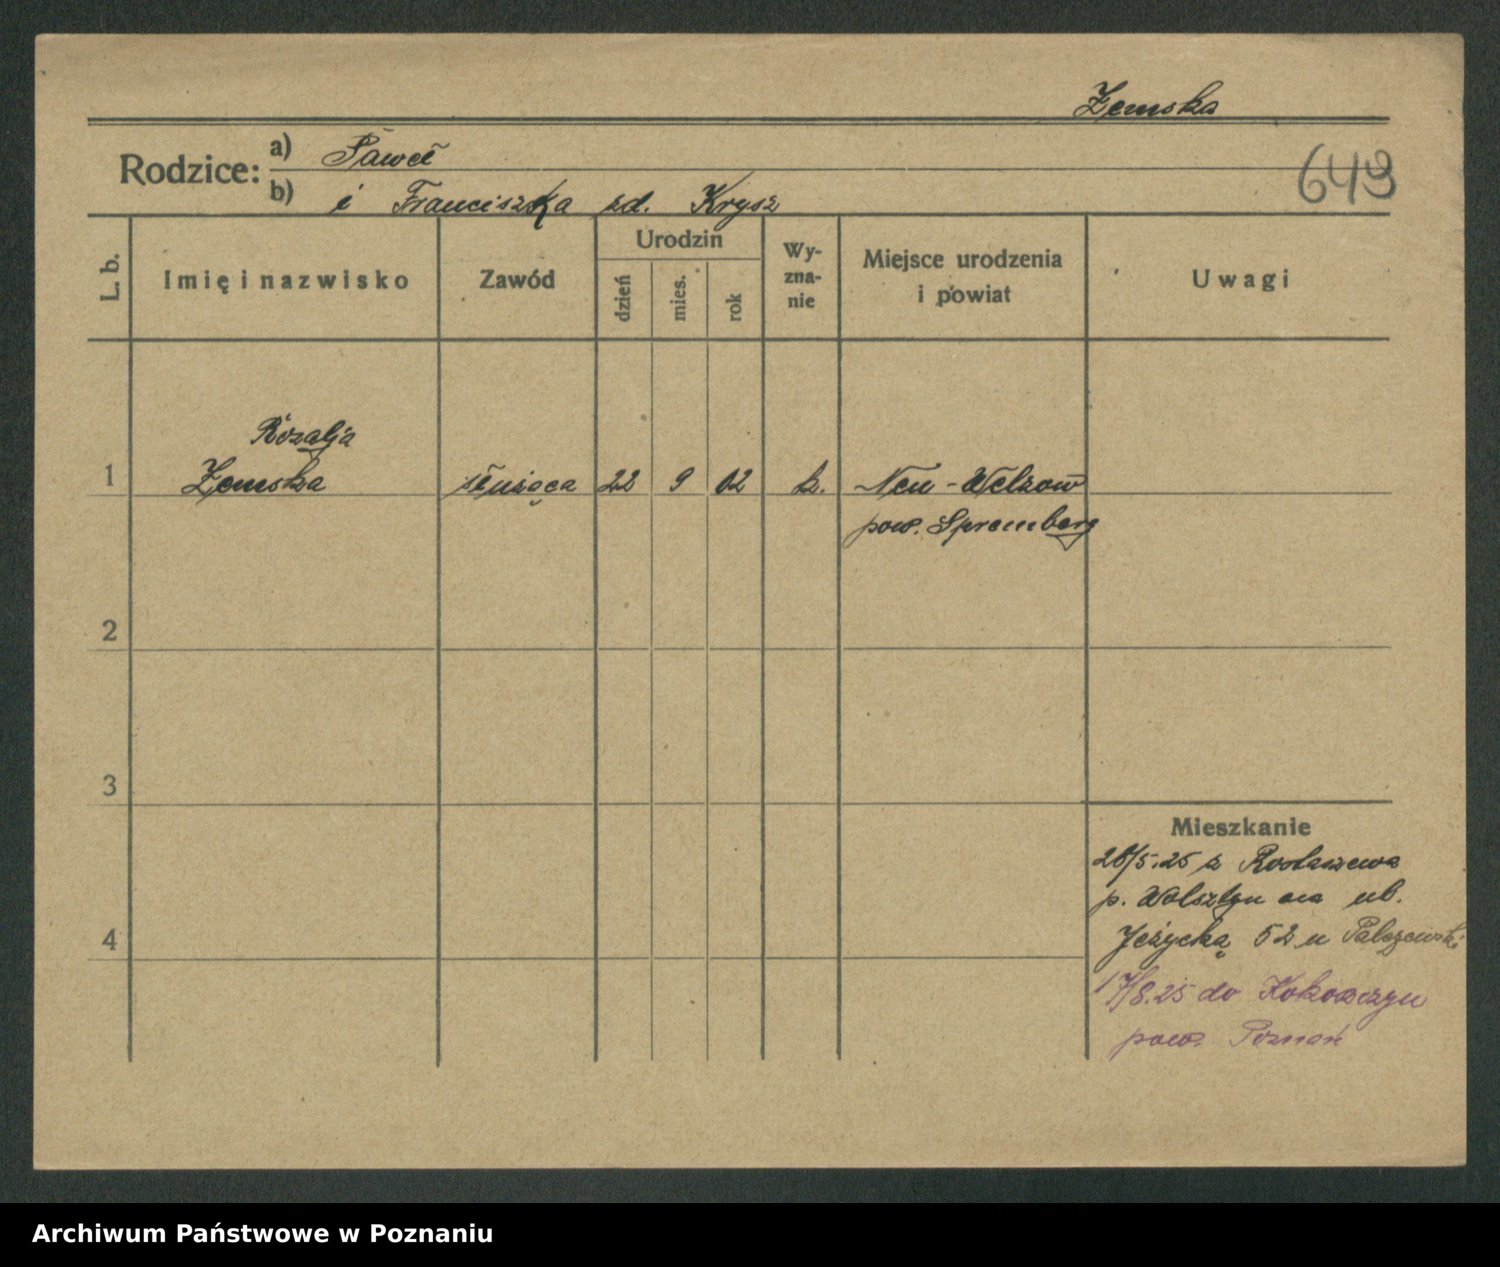 Zemska
Rodzice: a) Paweł
b) i Franciszka zd. Krysz
649
L. b.
Imię i nazwisko
Zawód
Urodzin
dzień
mies.
rok
Wy-
zna-
nie
Miejsce urodzenia
i powiat
Uwagi
Rozalja
1 Zemska służąca 22 9 02 k. Neu-Welzow
pow. Spremberg
2
3
Mieszkanie
26/5.25 z Rostarzewa
p. Wolsztyn na ul.
4
Jeżycką 52 u Palczewski
17/8.25 do Kokoszczyn
pow. Poznań
Archiwum Państwowe w Poznaniu